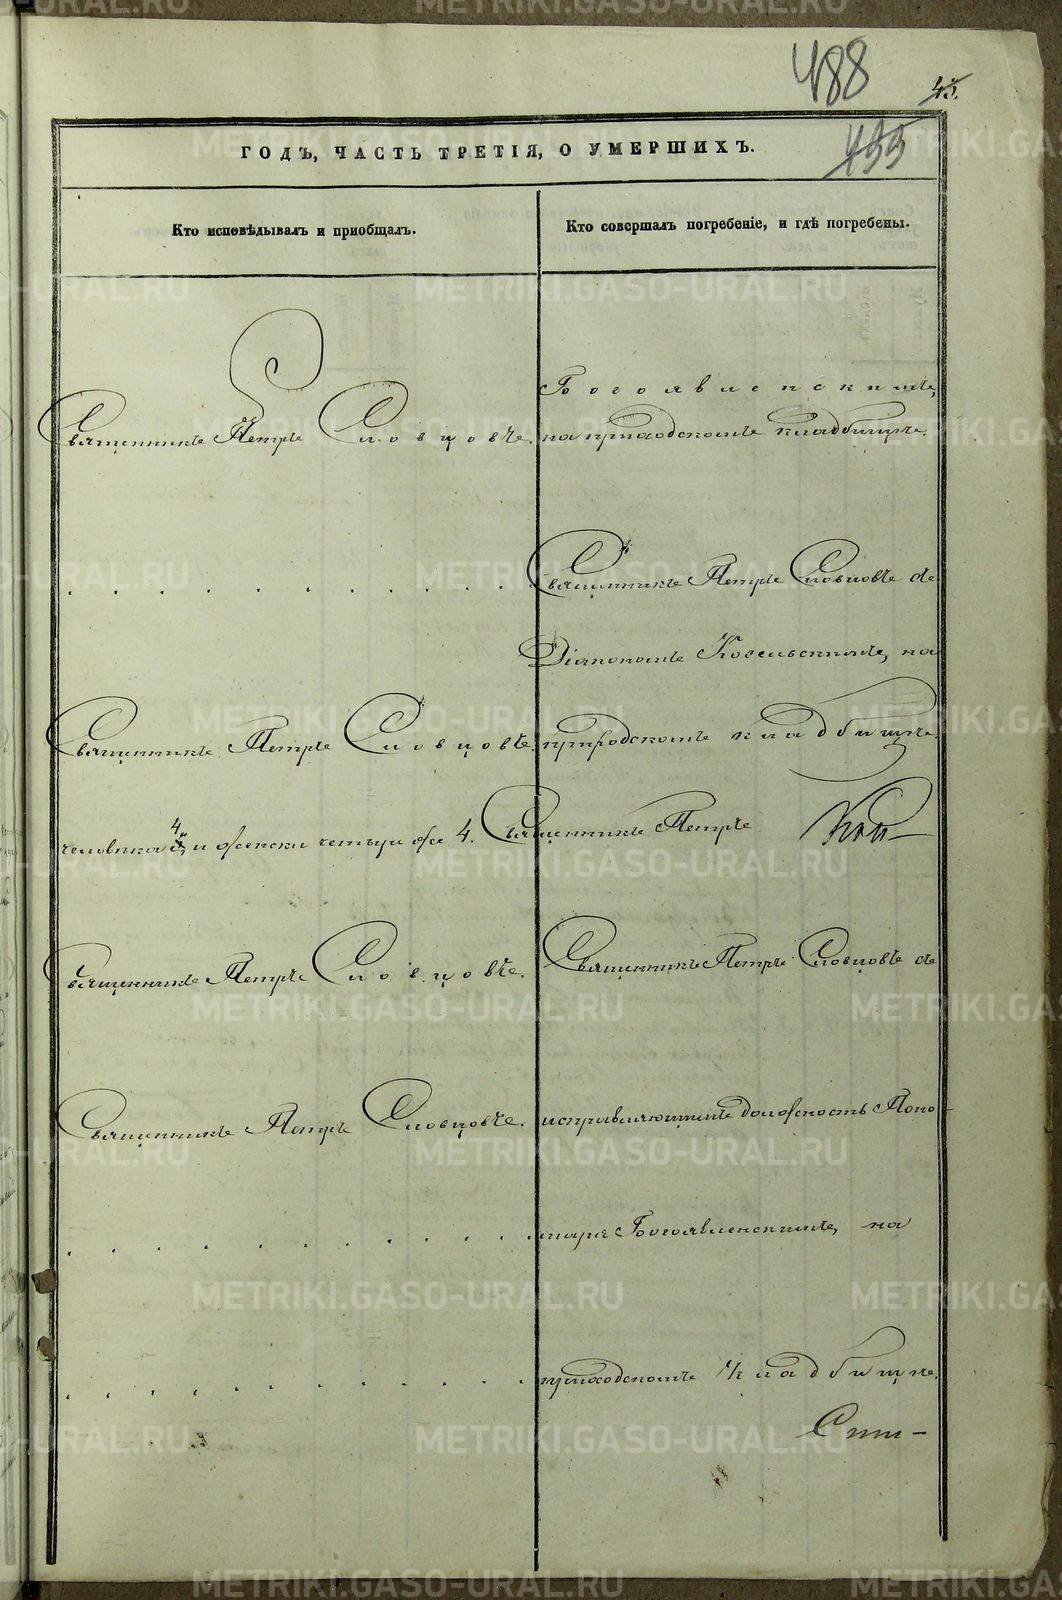 488
45.
455
ГОДЪ, ЧАСТЬ ТРЕТІЯ, О УМЕРШИХЪ.
Кто исповѣдывалъ и приобщалъ.
Кто совершалъ погребеніе, и гдѣ погребены.
Богоявленскимъ,
Священникъ Петръ Словцовъ. на приходскомъ кладбищѣ.
Священникъ Петръ Словцовъ съ
Діакономъ Косельскимъ, на
Священникъ Петръ Словцовъ. приходскомъ кладбищѣ.
человѣка 4 и женска четыре же 4. Священникъ Петръ
Священникъ Петръ Словцовъ. Священникъ Петръ Словцовъ съ
Священникъ Петръ Словцовъ. исправляющимъ должность Поно-
маря Богоявленскимъ, на
приходскомъ кладбищѣ.
METRIKI.GASO-URAL.RU